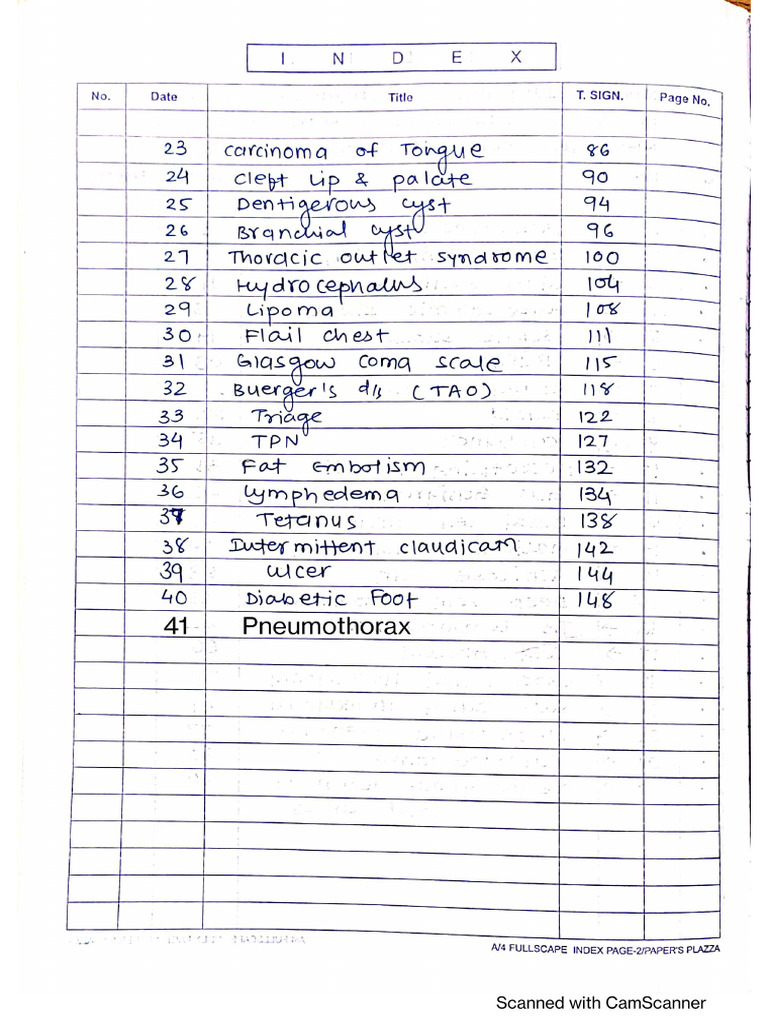 INDEX
No. Date Title T. SIGN. Page No.
23 Carcinoma of Tongue 86
24 Cleft Lip & palate 90
25 Dentigerous cyst 94
26 Branchial cyst 96
27 Thoracic outlet syndrome 100
28 Hydrocephalus 104
29 Lipoma 108
30 Flail chest 111
31 Glasgow coma scale 115
32 Buerger's d/s (TAO) 118
33 Triage 122
34 TPN 127
35 Fat Embolism 132
36 Lymphedema 134
37 Tetanus 138
38 Intermittent claudicatn 142
39 Ulcer 144
40 Diabetic Foot 148
41 Pneumothorax
A/4 FULLSCAPE INDEX PAGE-2/PAPER'S PLAZZA
Scanned with CamScanner